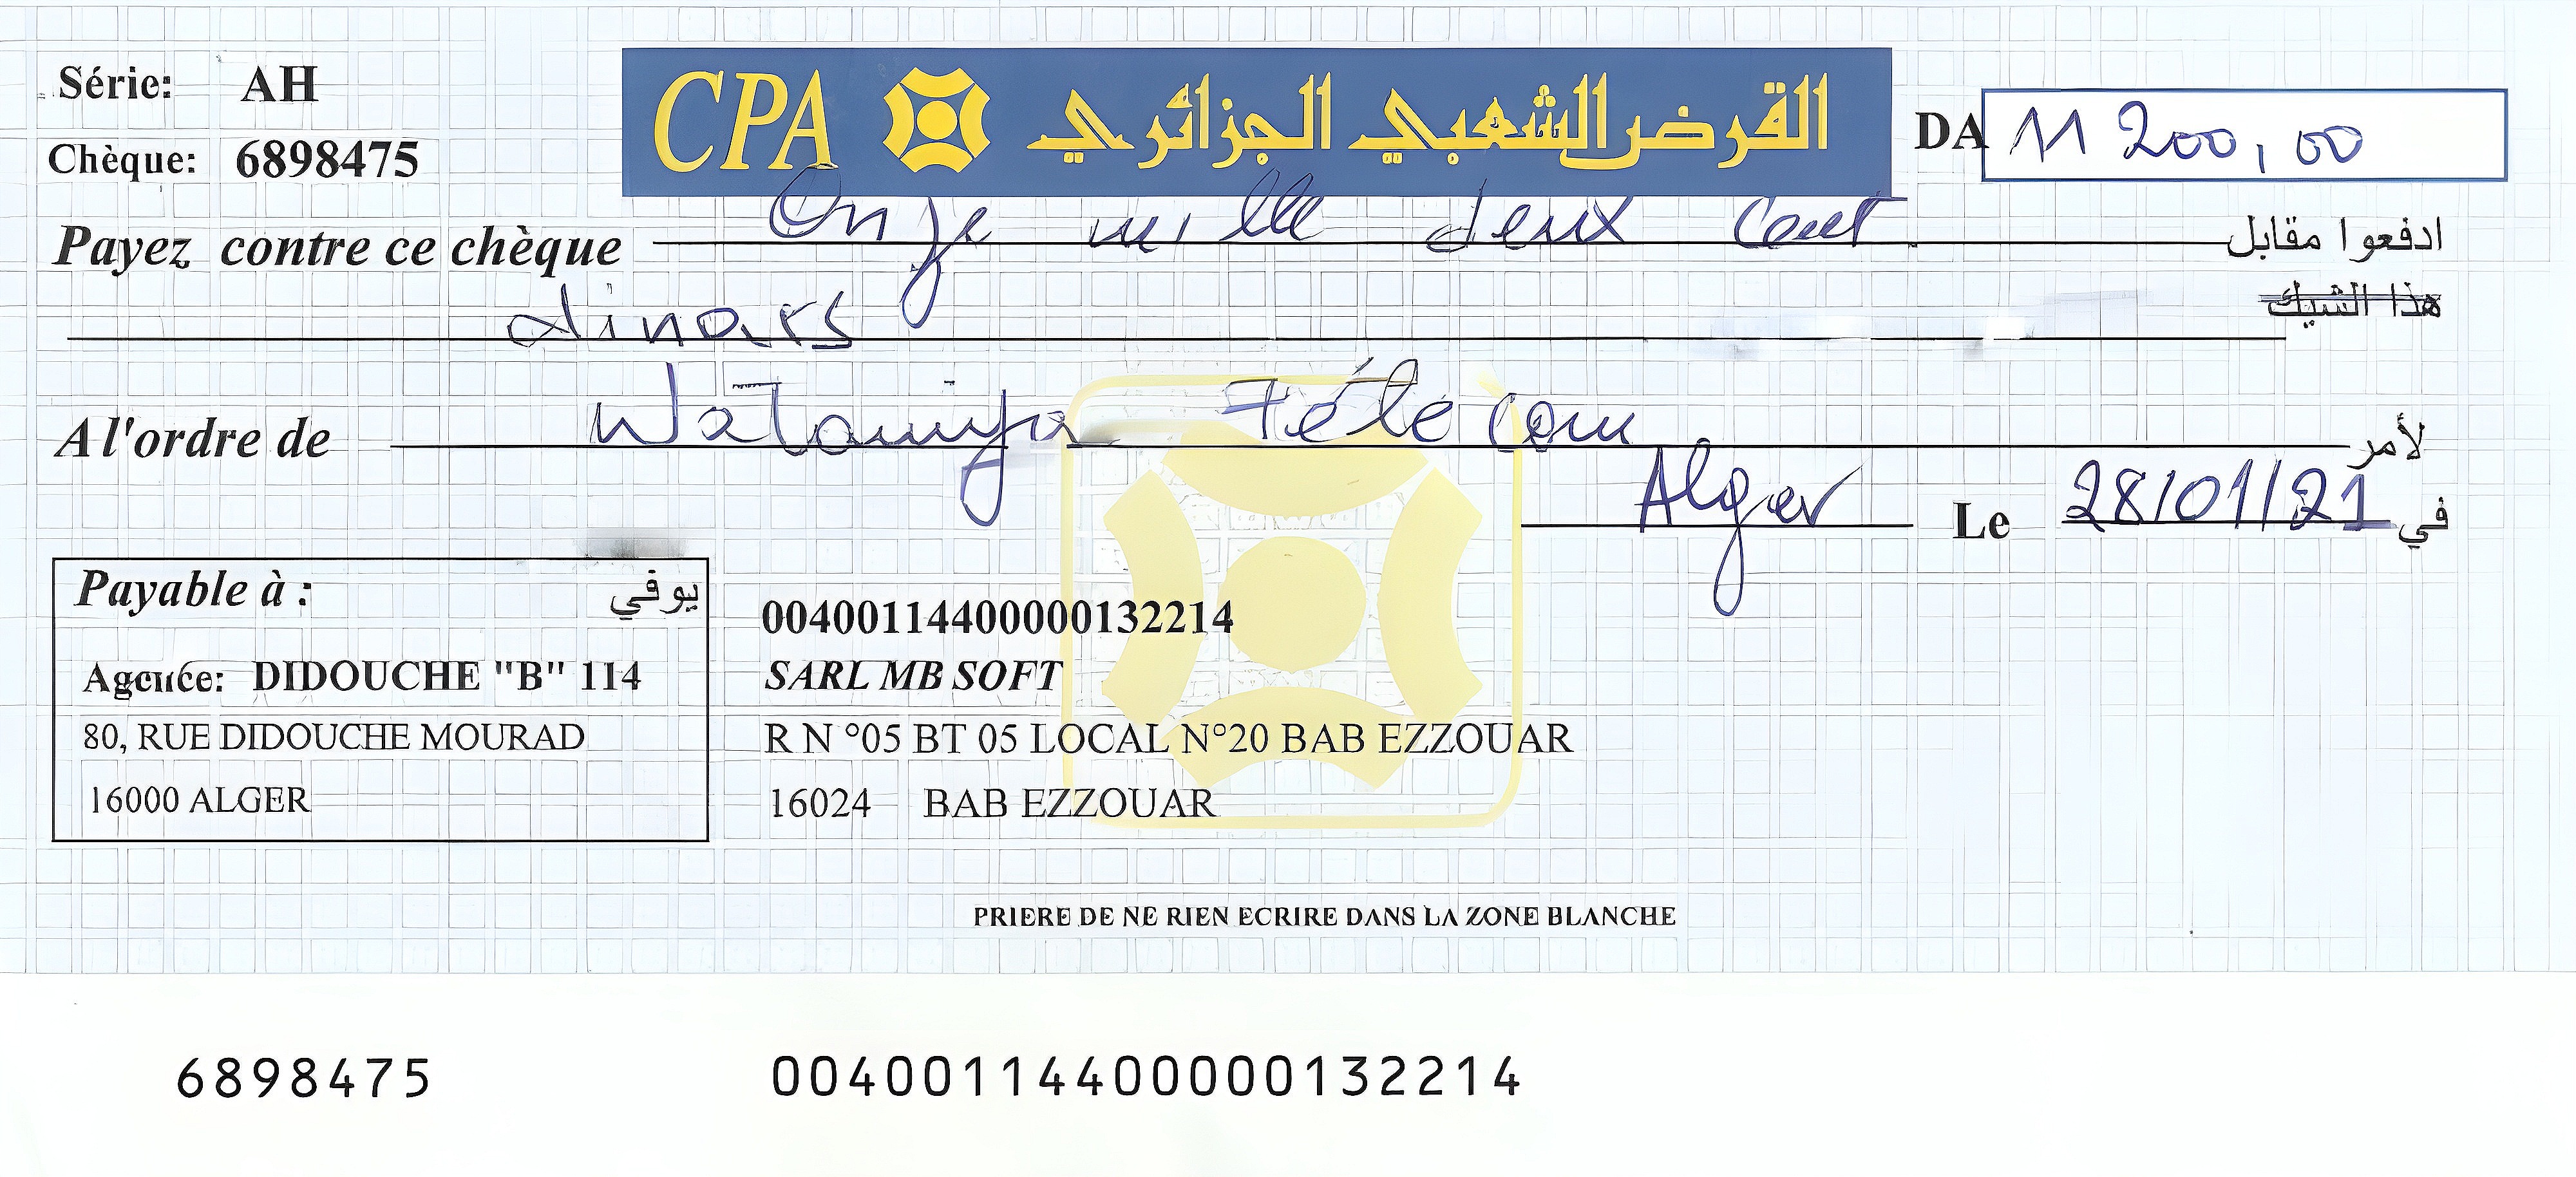 Série: AH
CPA القرض الشعبي الجزائري
DA 11 200,00
Chèque: 6898475
Payez contre ce chèque Onze mille deux cent ادفعوا مقابل
هذا الشيك
dinars
A l'ordre de Wataniya Télécom لأمر
Alger Le 28/01/21 في
Payable à : يوفي
Agence: DIDOUCHE "B" 114
80, RUE DIDOUCHE MOURAD
16000 ALGER
00400114400000132214
SARL MB SOFT
R N °05 BT 05 LOCAL N°20 BAB EZZOUAR
16024 BAB EZZOUAR
PRIERE DE NE RIEN ECRIRE DANS LA ZONE BLANCHE
6898475 00400114400000132214